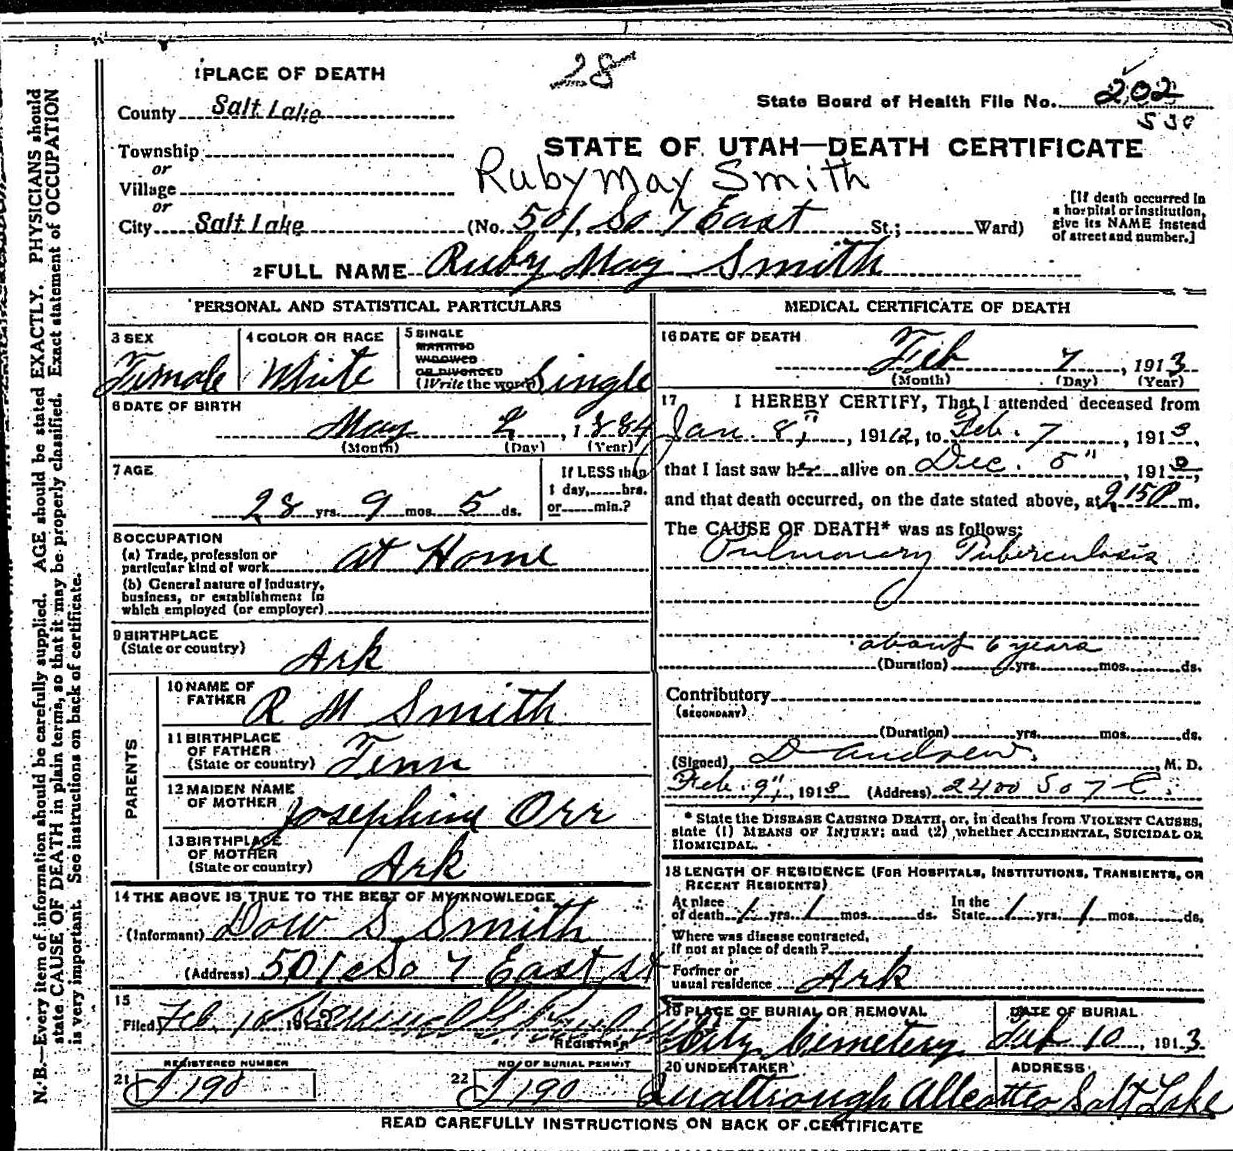 28
1 PLACE OF DEATH
County Salt Lake
State Board of Health File No. 202
530
STATE OF UTAH—DEATH CERTIFICATE
Township
or
Village
or
Ruby May Smith
City Salt Lake (No. 501 So 7 East St.; Ward)
[If death occurred in a hospital or institution, give its NAME instead of street and number.]
2 FULL NAME Ruby May Smith
PERSONAL AND STATISTICAL PARTICULARS
3 SEX
Female
4 COLOR OR RACE
White
5 SINGLE
MARRIED
WIDOWED
OR DIVORCED
(Write the word) Single
6 DATE OF BIRTH
May 2, 1884
(Month) (Day) (Year)
7 AGE
28 yrs. 9 mos. 5 ds.
If LESS than
1 day, hrs.
or min.?
8 OCCUPATION
(a) Trade, profession or
particular kind of work at Home
(b) General nature of industry,
business, or establishment in
which employed (or employer)
9 BIRTHPLACE
(State or country)
Ark
PARENTS
10 NAME OF
FATHER
R M Smith
11 BIRTHPLACE
OF FATHER
(State or country) Tenn
12 MAIDEN NAME
OF MOTHER
Josephine Orr
13 BIRTHPLACE
OF MOTHER
(State or country) Ark
14 THE ABOVE IS TRUE TO THE BEST OF MY KNOWLEDGE
(Informant) Dow S. Smith
(Address) 501 So 7 East St
15
Filed Feb 10 191
REGISTRAR
REGISTERED NUMBER
21 J 190
NO. OF BURIAL PERMIT
22 J 190
MEDICAL CERTIFICATE OF DEATH
16 DATE OF DEATH
Feb 7, 1913
(Month) (Day) (Year)
17 I HEREBY CERTIFY, That I attended deceased from
Jan. 8", 1912, to Feb. 7, 1913,
that I last saw her alive on Dec. 5", 191
and that death occurred, on the date stated above, at 9 15 P m.
The CAUSE OF DEATH* was as follows:
Pulmonary Tuberculosis
about 6 years
(Duration) yrs. mos. ds.
Contributory
(SECONDARY)
(Duration) yrs. mos. ds.
(Signed) D Andrew, M. D.
Feb. 9", 1913 (Address) 2400 So 7 E.
* State the DISEASE CAUSING DEATH, or, in deaths from VIOLENT CAUSES,
state (1) MEANS OF INJURY; and (2) whether ACCIDENTAL, SUICIDAL OR
HOMICIDAL.
18 LENGTH OF RESIDENCE (FOR HOSPITALS, INSTITUTIONS, TRANSIENTS, OR
RECENT RESIDENTS)
At place
of death 1 yrs. 1 mos. ds.
In the
State 1 yrs. 1 mos. ds.
Where was disease contracted,
if not at place of death?
Former or
usual residence Ark
19 PLACE OF BURIAL OR REMOVAL
City Cemetery
DATE OF BURIAL
Feb 10, 1913
20 UNDERTAKER
ADDRESS
Salt Lake
READ CAREFULLY INSTRUCTIONS ON BACK OF CERTIFICATE
N. B.—Every item of information should be carefully supplied. AGE should be stated EXACTLY. PHYSICIANS should
state CAUSE OF DEATH in plain terms, so that it may be properly classified. Exact statement of OCCUPATION
is very important. See instructions on back of certificate.